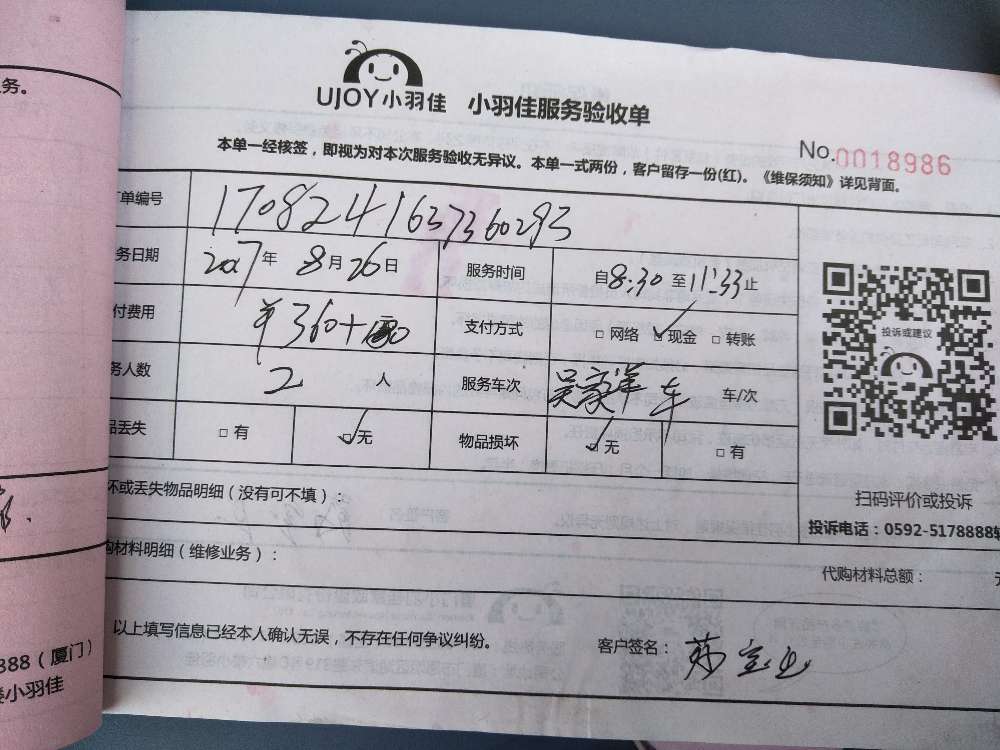 务。
UJOY小羽佳 小羽佳服务验收单
No.0018986
本单一经核签，即视为对本次服务验收无异议。本单一式两份，客户留存一份(红)。《维保须知》详见背面。
单编号 170824163736029 3
务日期 2017年 8月26日 服务时间 自8:30至11:33止
付费用 ¥360+ 支付方式 □网络 ☑现金 □转账
投诉或建议
务人数 2 人 服务车次 吴家洋车 车/次
品丢失 □有 ☑无 物品损坏 ☑无 □有
坏或丢失物品明细（没有可不填）：
扫码评价或投诉
投诉电话：0592-5178888转
购材料明细（维修业务）：
代购材料总额：
以上填写信息已经本人确认无误，不存在任何争议纠纷。 客户签名：
388（厦门）
小羽佳